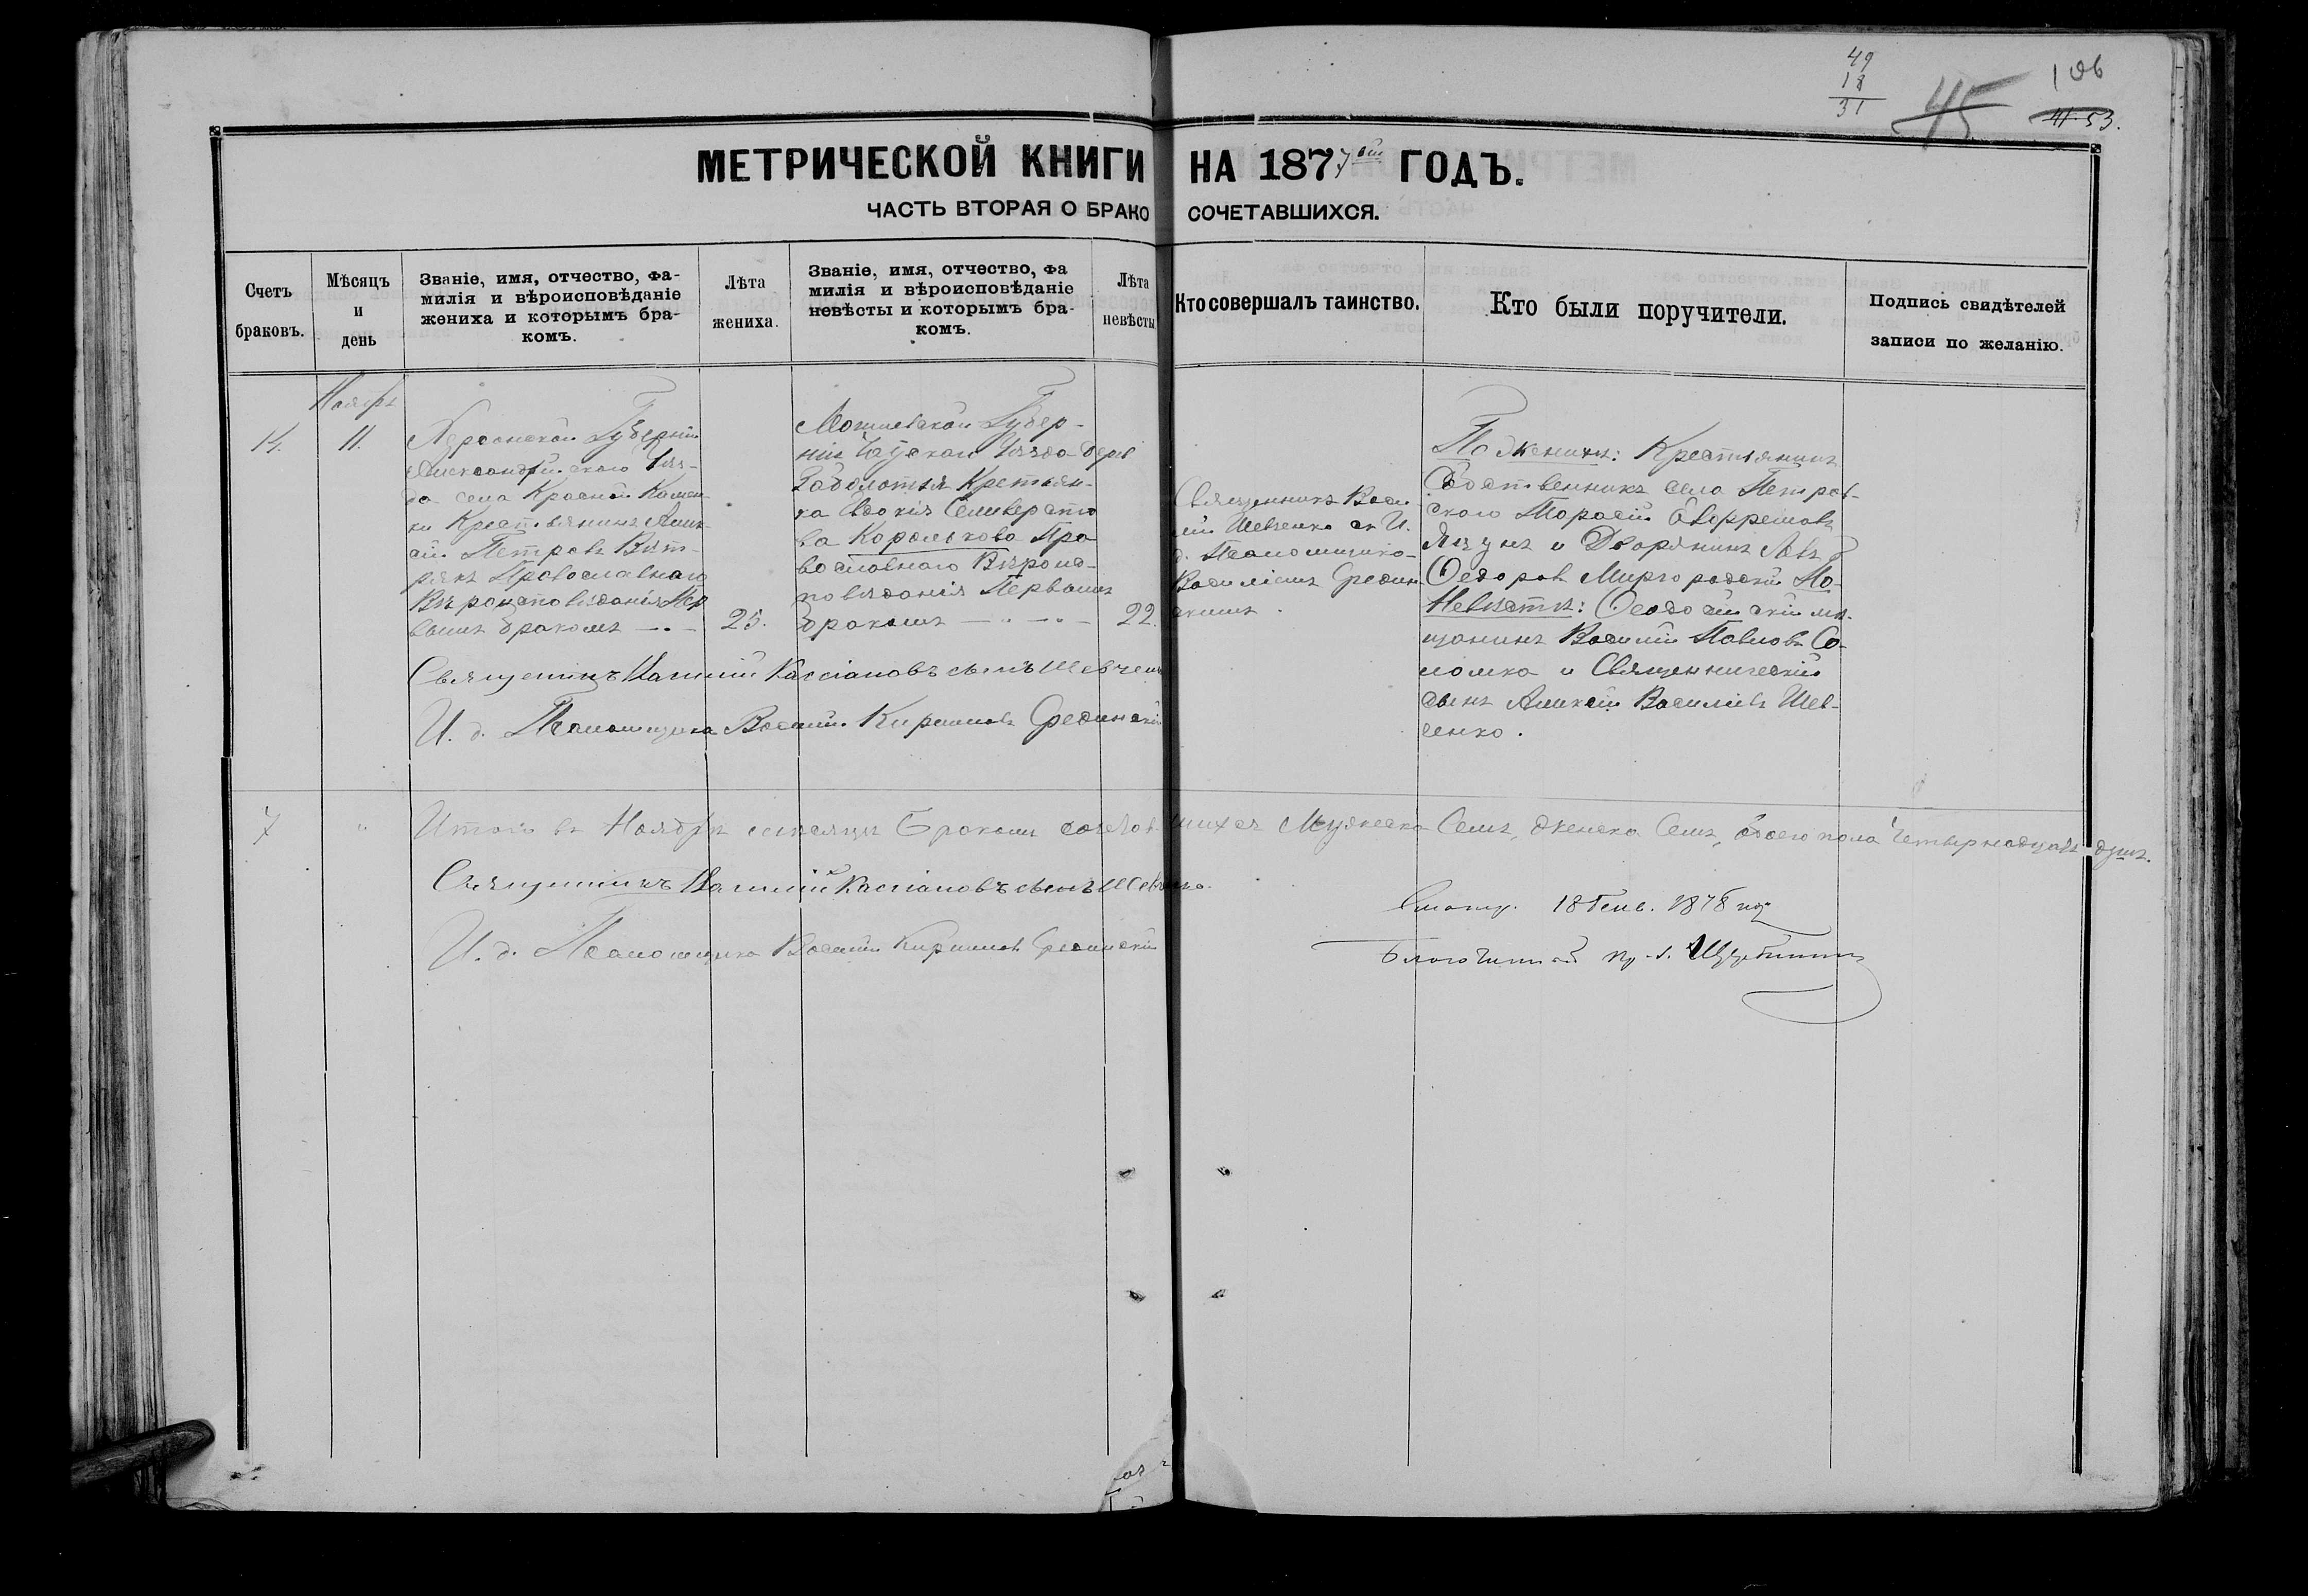 49
18
31
45
106
41 53.
МЕТРИЧЕСКОЙ КНИГИ НА 1877ой ГОДЪ.
ЧАСТЬ ВТОРАЯ О БРАКОСОЧЕТАВШИХСЯ.
Счетъ
браковъ.
Мѣсяцъ
и
день
Званіе, имя, отчество, фа-
милія и вѣроисповѣданіе
жениха и которымъ бра-
комъ.
Лѣта
жениха.
Званіе, имя, отчество, фа
милія и вѣроисповѣданіе
невѣсты и которымъ бра-
комъ.
Лѣта
невѣсты
Кто совершалъ таинство.
Кто были поручители.
Подпись свидѣтелей
записи по желанію.
14.
Ноябрь
11.
Херсонской Губерніи
Александрійскаго Уѣз-
да села Красной Камен-
ки Крестьянинъ Алек-
сѣй Петровъ
Православнаго
Вѣроисповѣданія Пер
вымъ бракомъ
25.
Могилевской Губер-
ніи Уѣзда дерев
Заболотья Крестьян-
ка Евдокія Селиверсто
ва Королькова Пра
вославнаго Вѣроис-
повѣданія Первымъ
бракомъ
22.
Священникъ Васи
лій Шевченко съ И.
д. Псаломщика
Василіемъ Средин
скимъ.
По женихѣ: Крестьянинъ
Собственникъ села Петров-
скаго Тарасій
Яцунъ и Дворянинъ Левъ
Федоровъ Миргородскій По
Невѣстѣ: Феодосійскій мѣ-
щанинъ Василій Павловъ Со-
ломка и Священническій
сынъ Алексѣй Васильевъ Шев-
ченко.
Священникъ Василій Кассіановъ сынъ Шевченко
И. д. Псаломщика Василій Кириловъ Срединскій
7
"
Итого въ Ноябрѣ мѣсяцѣ Бракомъ сочетавшихся Мужеска Семь, Женска Семь, обоего пола Четырнадцать душъ.
Священникъ Василій Кассіановъ сынъ Шевченко.
И. д. Псаломщика Василій Кириловъ Срединскій
18 Генв. 1878 года
Благочинный